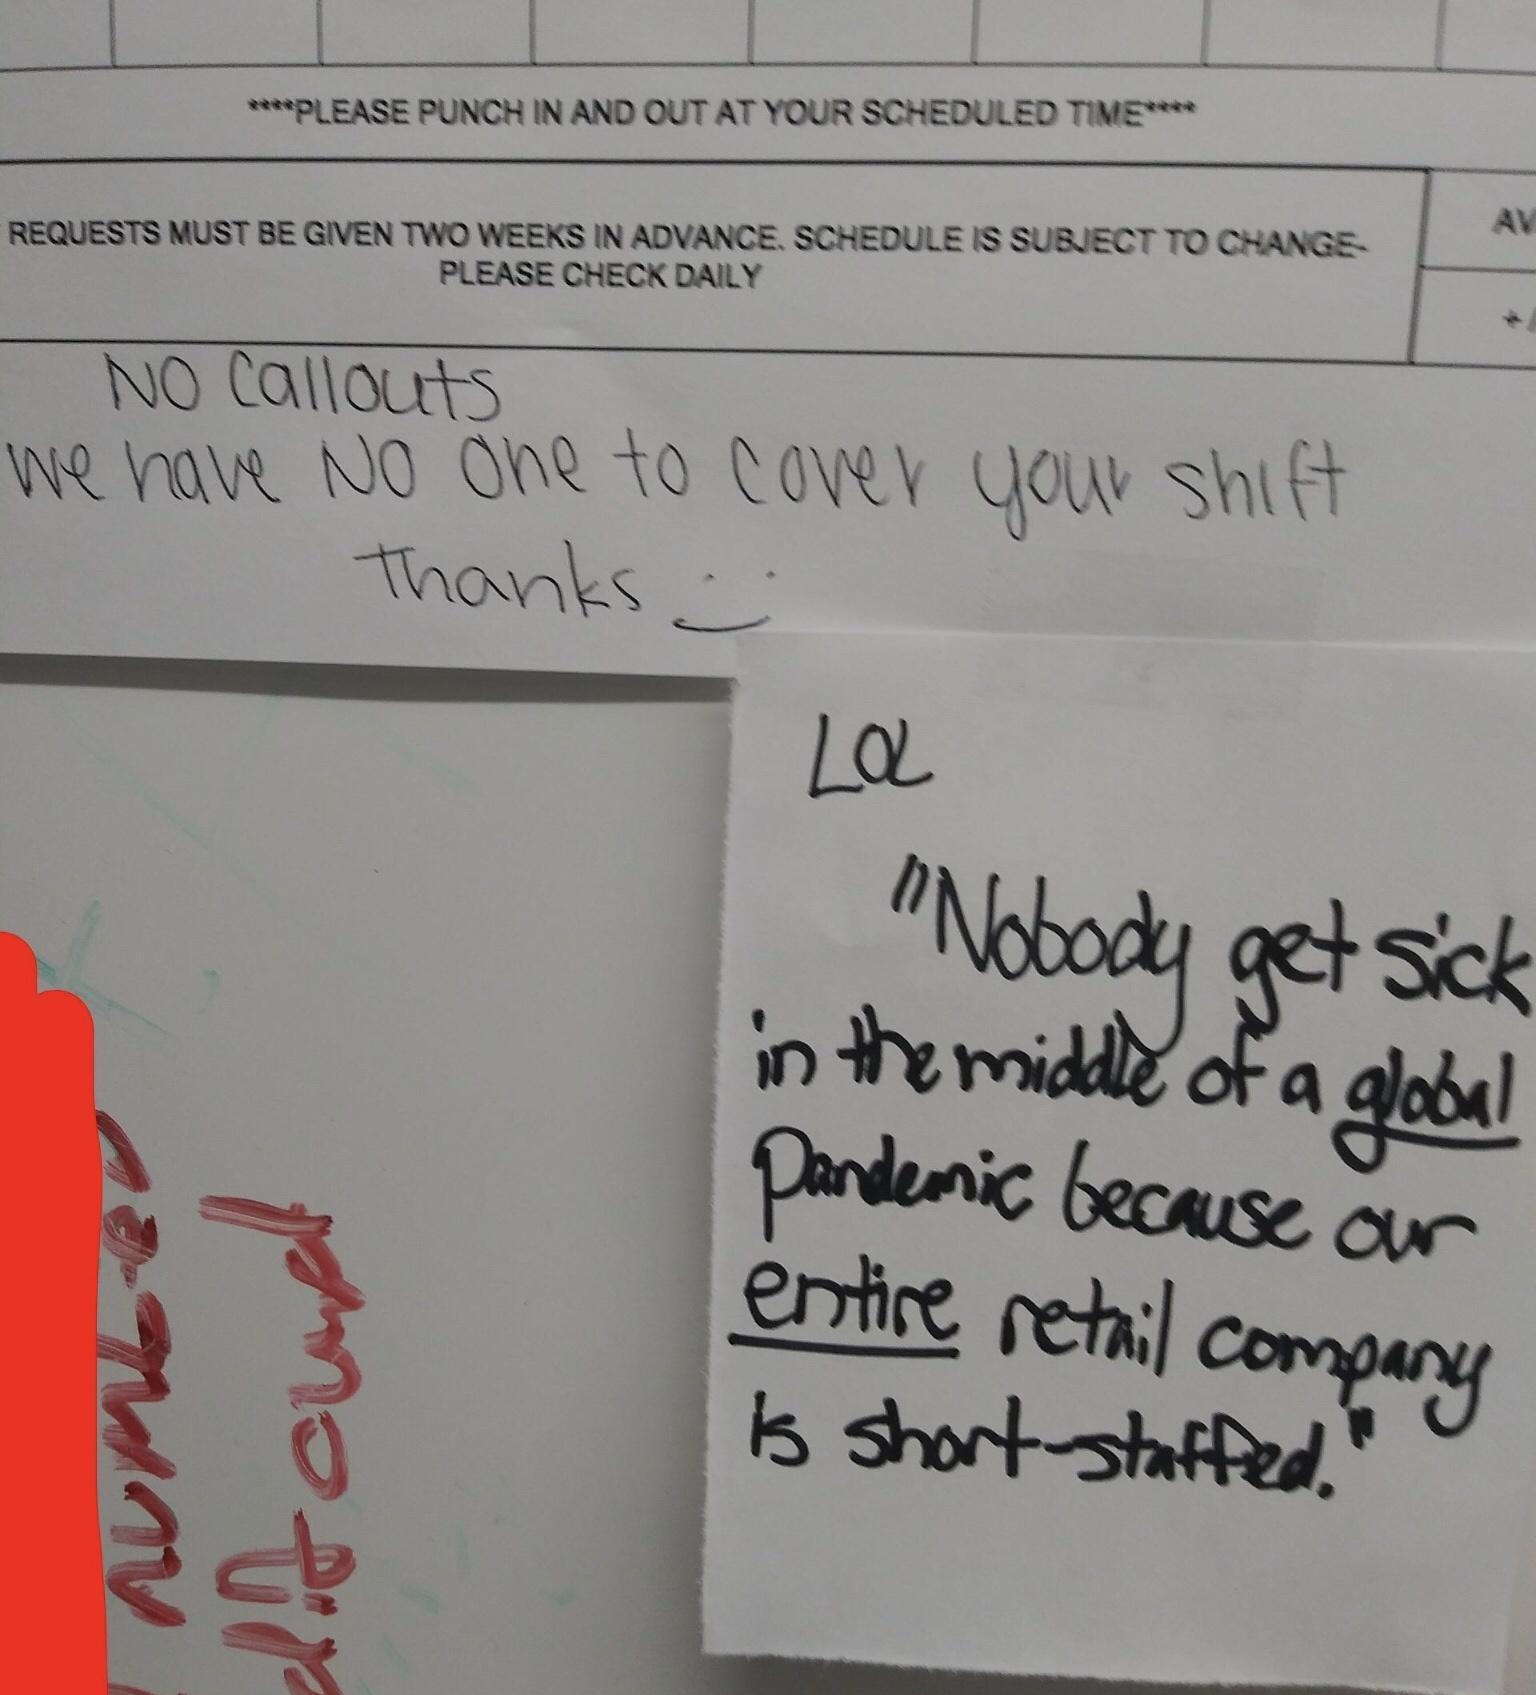 ****PLEASE PUNCH IN AND OUT AT YOUR SCHEDULED TIME****
REQUESTS MUST BE GIVEN TWO WEEKS IN ADVANCE. SCHEDULE IS SUBJECT TO CHANGE-
PLEASE CHECK DAILY
AV
+/
NO Callouts
We have NO One to cover your shift
Thanks
LOL
"Nobody get sick
in the middle of a global
Pandemic because our
entire retail company
is short-staffed."